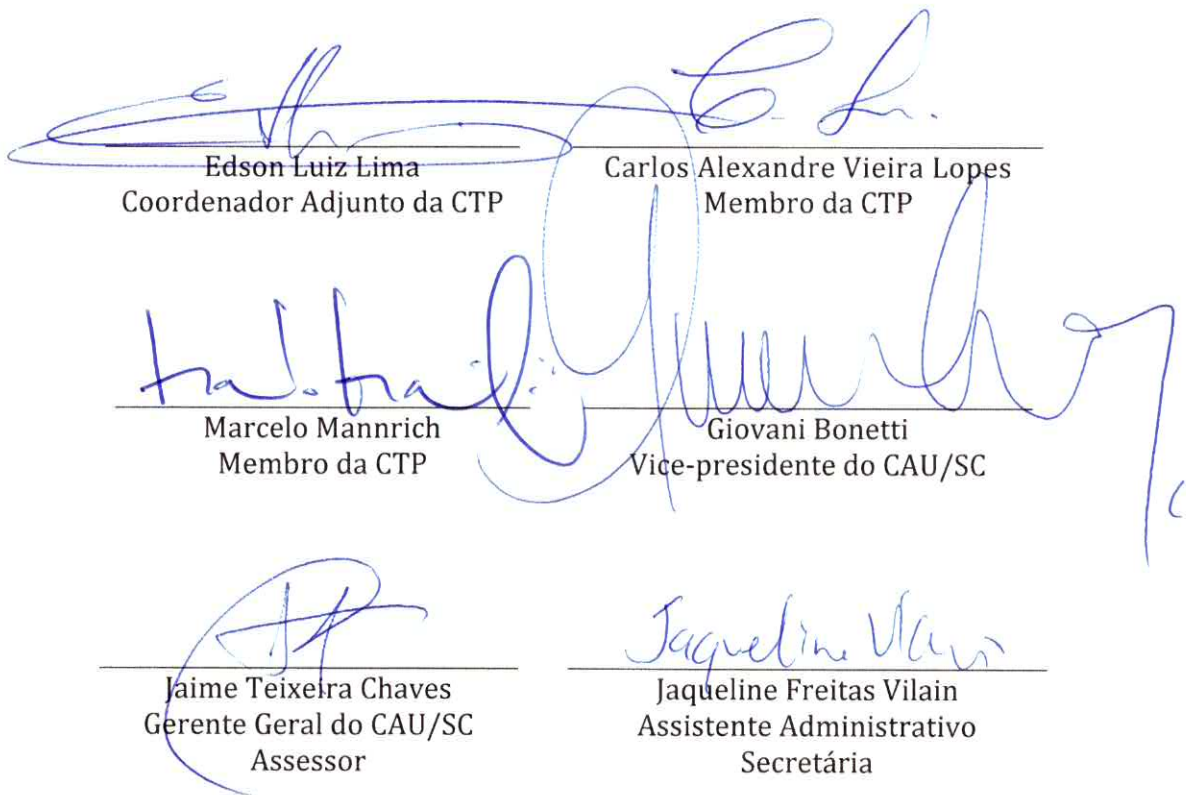 Edson Luiz Lima
Coordenador Adjunto da CTP
Carlos Alexandre Vieira Lopes
Membro da CTP
Marcelo Mannrich
Membro da CTP
Giovani Bonetti
Vice-presidente do CAU/SC
Jaqueline
Jaime Teixeira Chaves
Gerente Geral do CAU/SC
Assessor
Jaqueline Freitas Vilain
Assistente Administrativo
Secretária